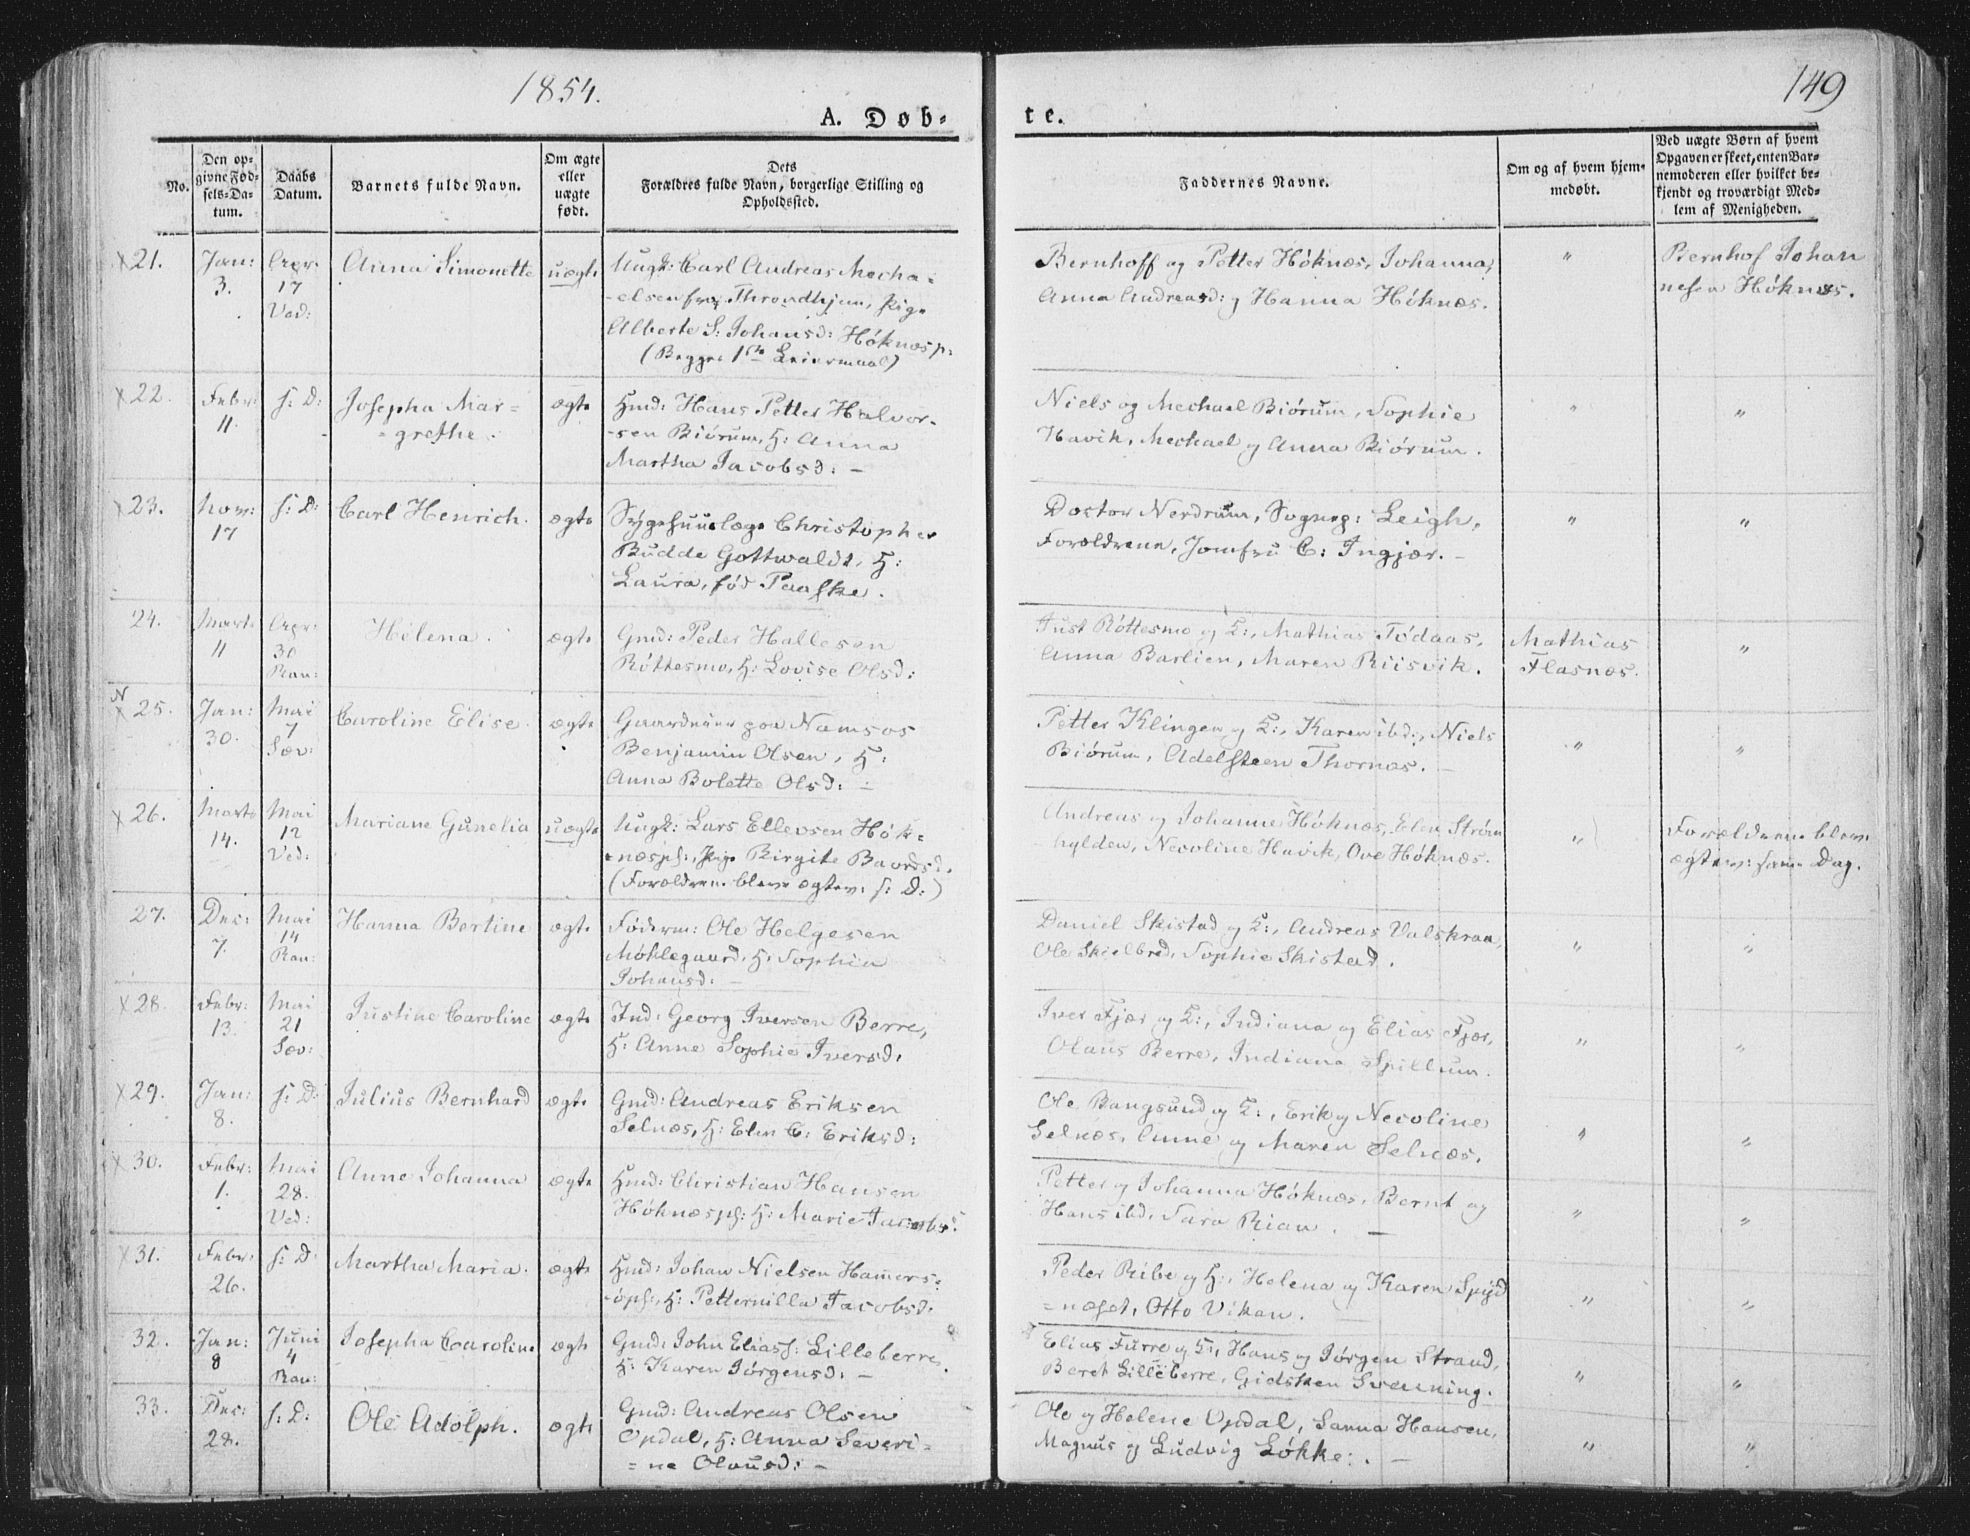 1854.
149
A. Døb-
te.
No.
Den op-
givne Fød-
sels-Da-
tum.
Daabs
Datum.
Barnets fulde Navn.
Om ægte
eller
uægte
født.
Dets
Forældres fulde Navn, borgerlige Stilling og
Opholdssted.
Faddernes Navne.
Om og af hvem hjem-
medøbt.
Ved uægte Børn af hvem
Opgaven er skeet, enten Bar-
nemoderen eller hvilket be-
kjendt og troværdigt Med-
lem af Menigheden.
x 21.
Jan:
3.
Apr:
17
Ved:
Anna Simonette
uægte
Ungk: Carl Andreas Mecha=
-elsen fra Throndhjem, Pige
Alberte S: Johansd: Høknæsp:
(Begges 1ste Leiermaal)
Bernhoff og Petter Høknæs, Johanna,
Anna Andreasd: og Hanna Høknæs.
"
Bernhof Johan
nesen Høknæs.
x 22.
Febr:
11.
s: D:
Josepha Mar=
=grethe.
ægte
Hmd: Hans Petter Halvor-
-sen Biørum, H: Anna
Martha Jacobsd: -
Niels og Mechael Biørum, Sophie
Havik, Mechael og Anna Biørum.
"
"
x 23.
Nov:
17
s: D:
Carl Henrich.
ægte
Sygehuuslæge Christopher
Budde Gottwaldt, H:
Laura, fød Paaske.
Doctor Nerdrum, Sognep: Leigh,
Forældrene, Jomfru C: Ingjær. -
"
"
24.
Marts
11
Apr:
30
Ran:
Helena.
ægte
Gmd: Peder Hallesen
Røttesmo, H: Lovise Olsd:
Just Røttesmo og K:, Mathias Tødaas,
Anna Barlien, Maren Riisvik.
Mathias
Flasnæs.
"
N
x 25.
Jan:
30.
Mai
7
Sæv:
Caroline Elise.
ægte
Gaardeier paa Namsos
Benjamin Olsen, H:
Anna Bolette Olsd: -
Petter Klingen og K:, Karen ibd:, Niels
Biørum, Adelsteen Thornæs. -
"
"
x 26.
Marts
14.
Mai
12
Ved:
Mariane Gunelia
uægte
Ungk: Lars Ellevsen Høk=
=næspl:, Pige Birgite Baardsd.
(Forældrene bleve ægtev: s: D:)
Andreas og Johanne Høknæs, Elen Strøm
hylden, Necoline Havik, Ove Høknæs.
"
Forældrene bleve
ægtev: sam. Dag.
27.
Dec:
7.
Mai
14
Ran:
Hanna Bertine
ægte
Føderm: Ole Helgesen
Møklegaard, H: Sophia
Johansd: -
Daniel Skistad og K:, Andreas Valskraa,
Ole Skielbred, Sophie Skistad.
"
"
x 28.
Febr:
13.
Mai
21
Sæv:
Justine Caroline
ægte
Ind: Georg Iversen Berre,
H: Anne Sophie Iversd:
Iver Fjær og K:, Indiana og Elias Fjær,
Olaus Berre, Indiana Spillum.
"
"
x 29.
Jan:
8.
s: D:
Julius Bernhard
ægte
Gmd: Andreas Eriksen
Selnæs, H: Elen C: Eriksd:
Ole Bangsund og K:, Erik og Necoline
Selnæs, Anne og Maren Selnæs.
"
"
x 30.
Febr:
1.
Mai
28.
Ved:
Anne Johanna
ægte
Hmd: Christian Hansen
Høknæspl: H: Marie Jacobsd:
Petter og Johanna Høknæs, Bernt og
Hans ibd, Sara Rian. -
"
"
x 31.
Febr:
26.
s: D:
Martha Maria.
ægte
Hmd: Johan Nielsen Hamers=
-øpl:, H: Petternilla Jacobsd:
Peder Ribe og H:, Helena og Karen Spyd
=næset, Otto Vikan.
"
"
32.
Jan:
8
Juni
4
Ran:
Josepha Caroline
ægte
Gmd: John Eliass: Lilleberre,
H: Karen Jørgensd: -
Elias Furre og K:, Hans og Jørgen Strand,
Beret Lilleberre, Gidsken Svenning.
"
"
33.
Dec:
28.
s: D:
Ole Adolph.
ægte
Gmd: Andreas Olsen
Opdal, H: Anna Severi=
=ne Olausd: -
Ole og Helene Opdal, Sanna Hansen,
Magnus og Ludvig Løkke: . -
"
"